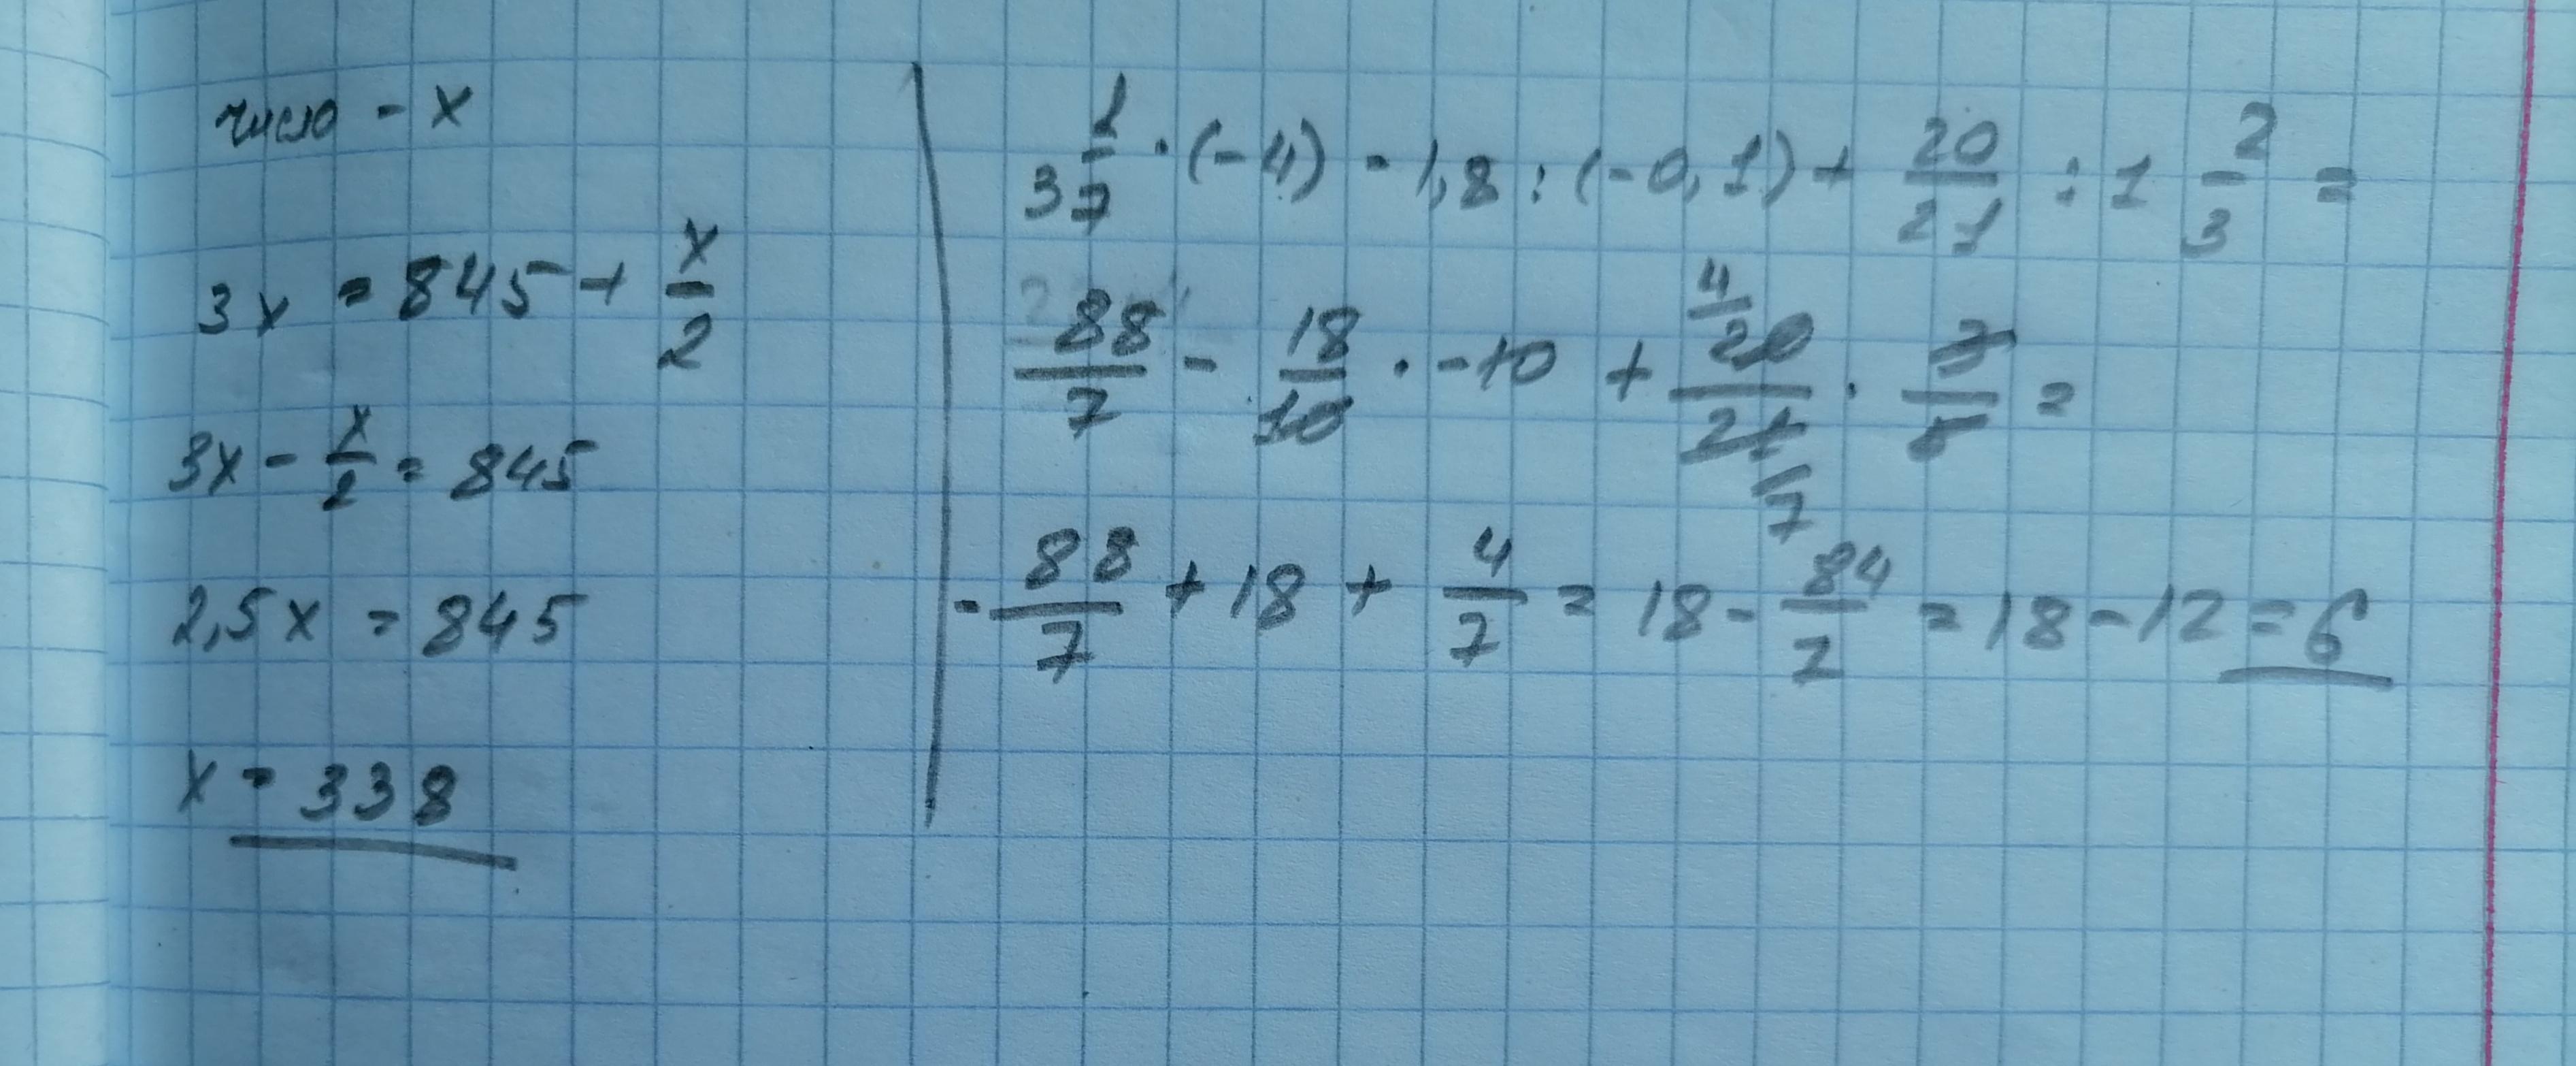 число - x
3x = 845 + x/2
3x - x/2 = 845
2,5x = 845
x = 338
3 1/7 · (-4) - 1,8 : (-0,1) + 20/21 : 1 2/3 =
88/7 - 18/10 · -10 + 4/20/21/7 · 3/5 =
- 88/7 + 18 + 4/7 = 18 - 84/7 = 18 - 12 = 6